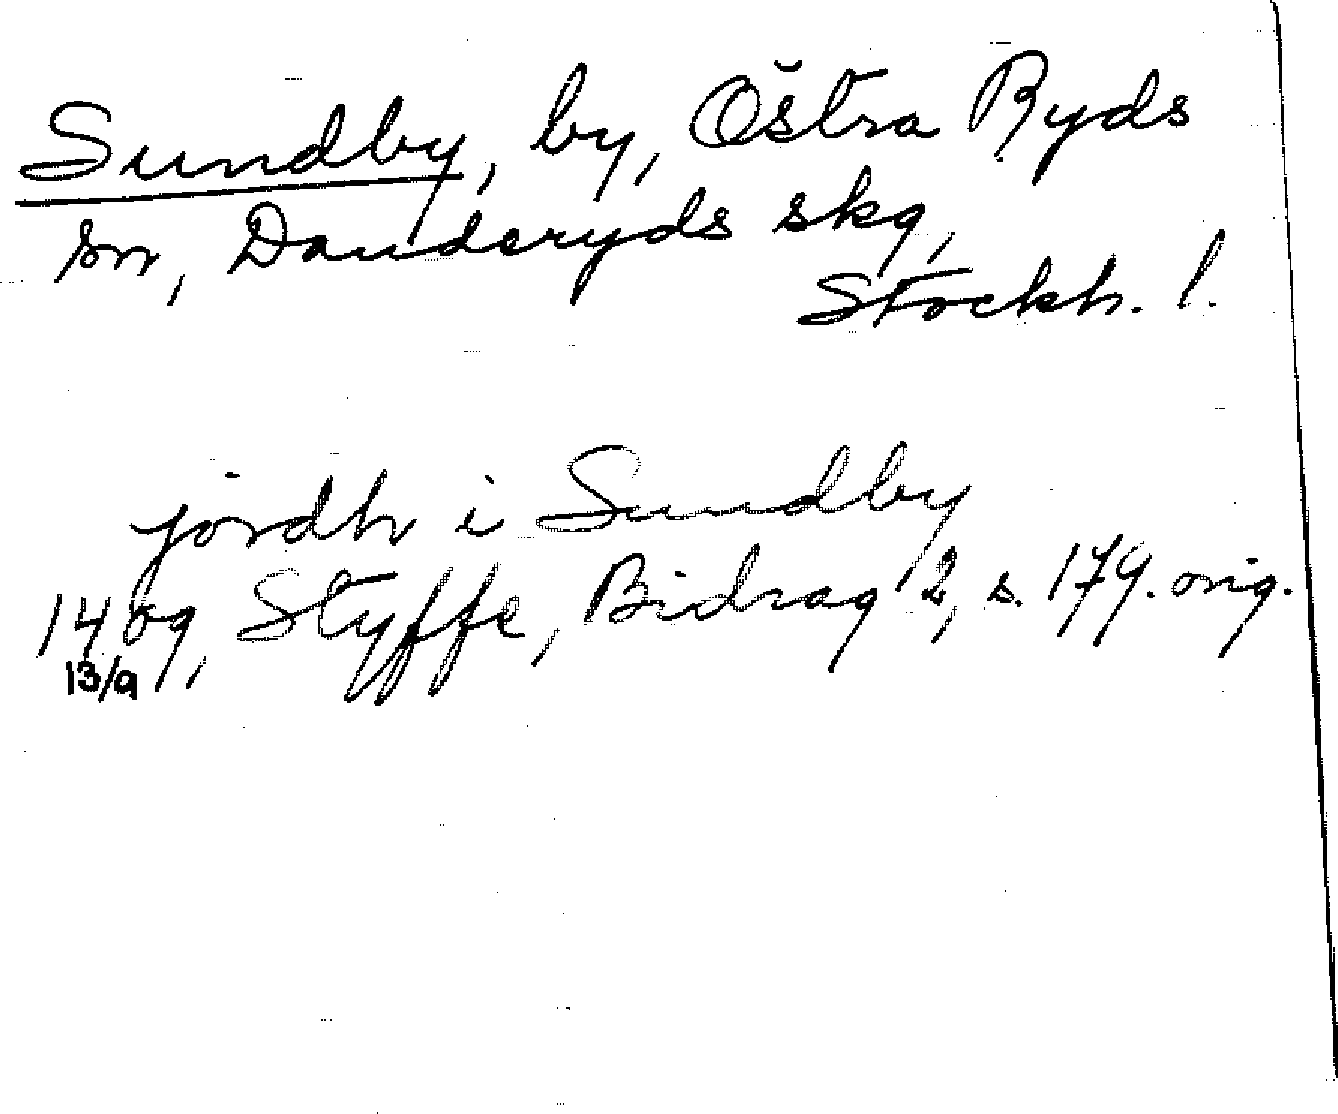 Sundby, by, Östra Ryds
sn, Danderyds skg,
Stockh. l.
jördh i Sundby
1409, Styffe, Bidrag 2, s. 179. orig.
13/9